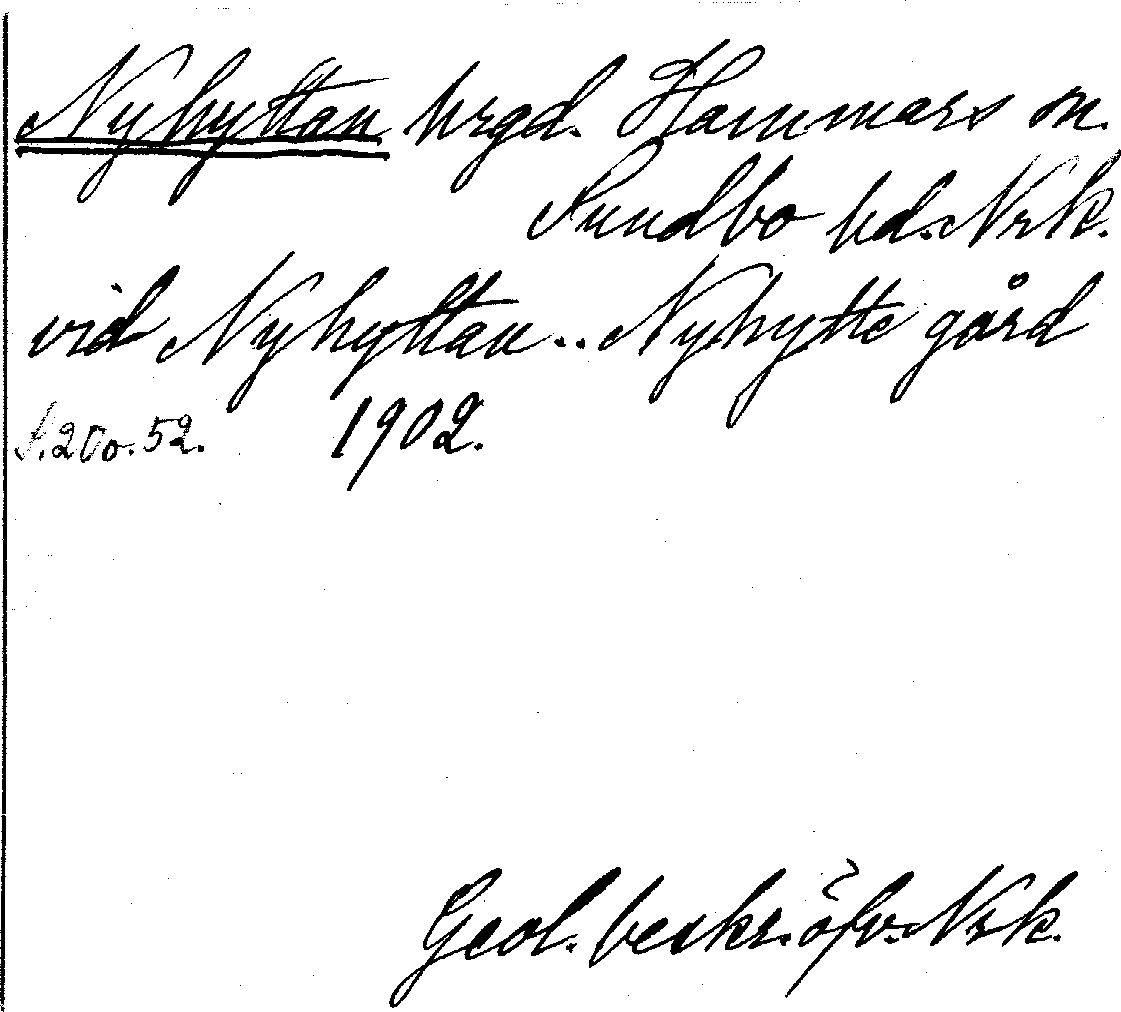 Nyhyttan hrgd. Hammars sn.
Sundbo hd. Nrk.
vid Nyhyttan .. Nyhytte gård
S. 200. 52. 1902.
Geol. beskr. öfv. Nrk.